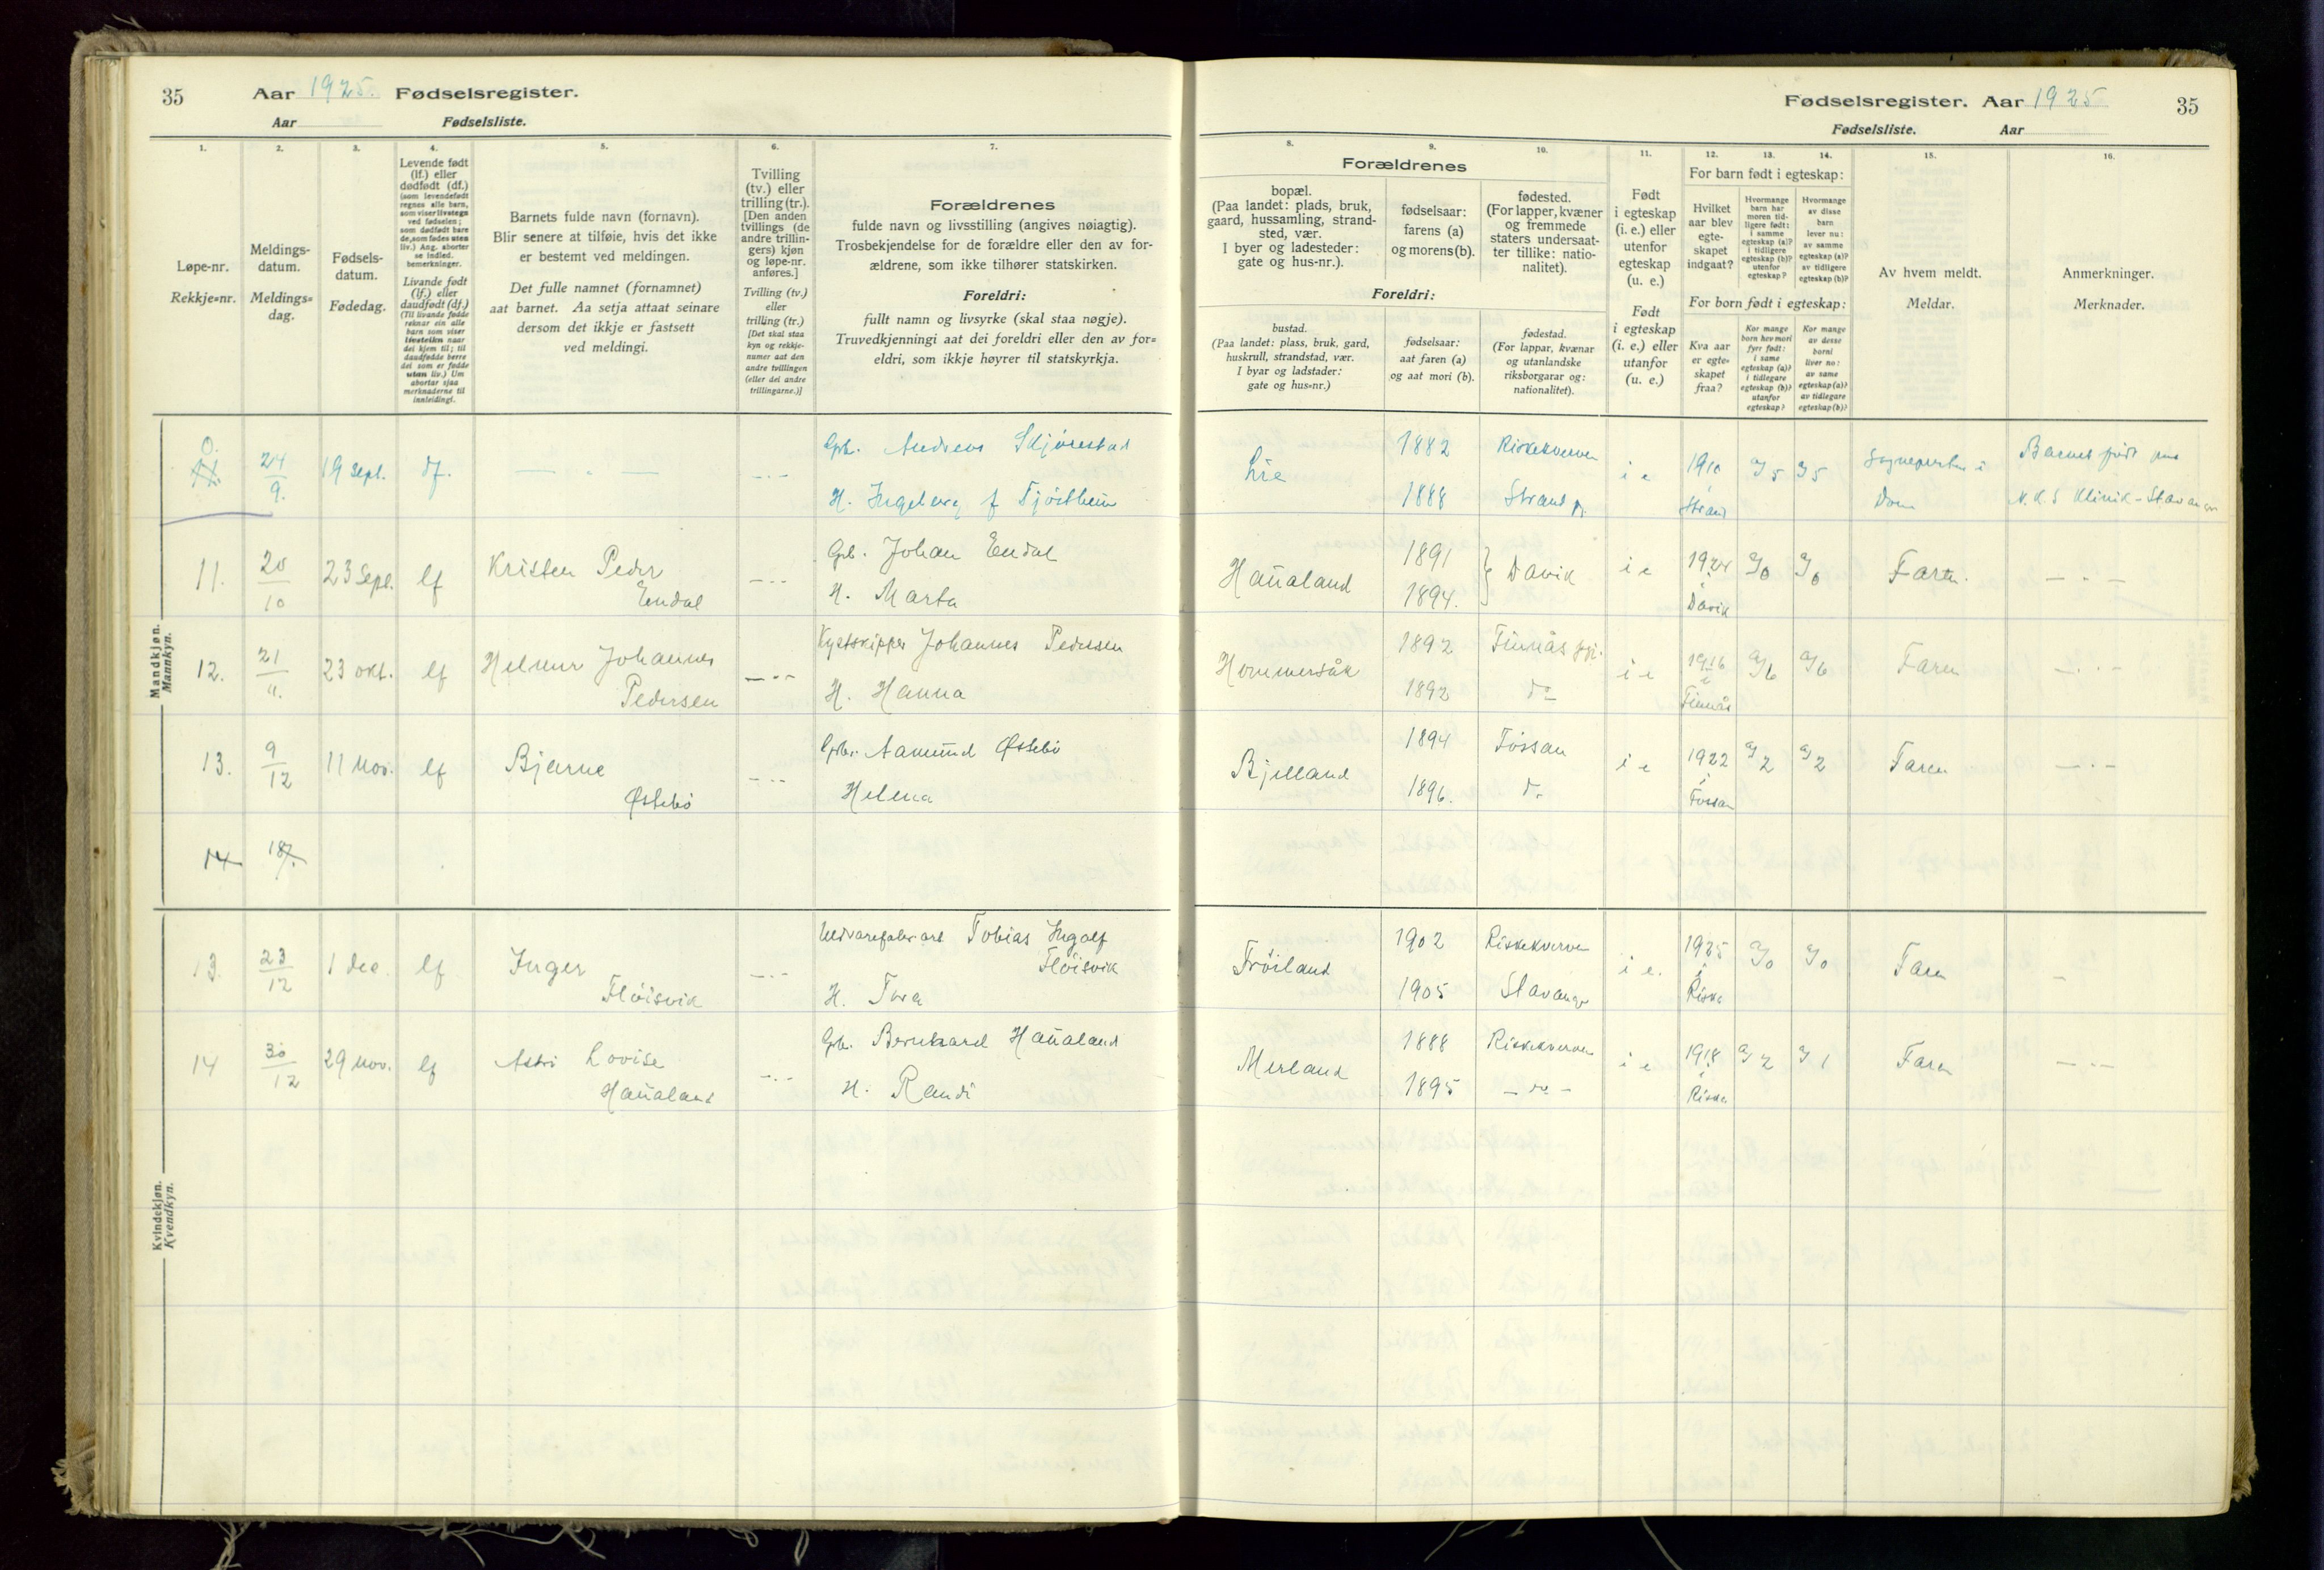 35 Aar 1925. Fødselsregister.
Aar Fødselsliste.
1. 2. 3. 4. 5. 6. 7.
Løpe-nr.
Rekkje=nr.
Meldings-
datum.
Meldings=
dag.
Fødsels-
datum.
Fødedag.
Levende født
(lf.) eller
dødfødt (df.)
(som levendefødt
regnes alle barn,
som viser livstegn
ved fødselen;
som dødfødt bare
de, som fødes uten
liv.) Ang. aborter
se indled.
bemerkninger.
Livande født
(lf.) eller
daudfødt (df.)
(Til livande fødde
reknar ein alle
barn som viser
livsteikn naar
dei kjem til; til
daudfødde berre
dei som er fødde
utan liv.) Um
abortar sjaa
merknaderne til
innleidingi.
Barnets fulde navn (fornavn).
Blir senere at tilføie, hvis det ikke
er bestemt ved meldingen.
Det fulle namnet (fornamnet)
aat barnet. Aa setja attaat seinare
dersom det ikkje er fastsett
ved meldingi.
Tvilling
(tv.) eller
trilling (tr.).
[Den anden
tvillings (de
andre trillin-
gers) kjøn
og løpe-nr.
anføres.]
Tvilling (tv.)
eller
trilling (tr.)
[Det skal staa
kyn og rekkje-
numer aat den
andre tvillingen
(eller dei andre
trillingarne.)]
Forældrenes
fulde navn og livsstilling (angives nøiagtig).
Trosbekjendelse for de forældre eller den av for-
ældrene, som ikke tilhører statskirken.
Foreldri:
fullt namn og livsyrke (skal staa nøgje).
Truvedkjenningi aat dei foreldri eller den av for=
eldri, som ikkje høyrer til statskyrkja.
Mandkjøn.
Mannkyn.
0.
11.
24/9. 19 Sept. df. — " — — " — Gbr. Andreas Skjørestad
H. Ingeborg f Tjöstheim
11. 20/10 23 Sept. lf Kristen Peder
Endal — " — Gbr. Johan Endal
H. Marta
12. 21/11. 23 okt. lf Helmer Johannes
Pedersen — " — Kystskipper Johannes Pedersen
H. Hanna
13. 9/12 11 Nov. lf Bjarne
Østebö — " — Gbr. Aamund Østebö
Helena
14 18/.
Kvindekjøn.
Kvendkyn.
13. 23/12 1 dec. lf Inger
Flöisvik — " — Tobias Ingolf
Flöisvik
H. Tora
14 30/12 29 Nov. lf Astri Lovise
Haŭaland — " — Gbr. Bernhard Haŭaland
H. Randi
Fødselsregister. Aar 1925 35
Fødselsliste. Aar
8. 9. 10. 11. 12. 13. 14. 15. 16.
Forældrenes
bopæl.
(Paa landet: plads, bruk,
gaard, hussamling, strand-
sted, vær.
I byer og ladesteder:
gate og hus-nr.).
fødselsaar:
farens (a)
og morens (b).
fødested.
(For lapper, kvæner
og fremmede
staters undersaat-
ter tillike: natio-
nalitet).
Foreldri:
bustad.
(Paa landet: plass, bruk, gard,
huskrull, strandstad, vær.
I byar og ladstader:
gate og hus=nr.)
fødselsaar:
aat faren (a)
og aat mori (b).
fødestad.
(For lappar, kvænar
og utanlandske
riksborgarar og:
nationalitet).
Født
i egteskap
(i. e.) eller
utenfor
egteskap
(u. e.)
Født
i egteskap
(i. e.) eller
utanfor
(u. e.)
For barn født i egteskap:
Hvilket
aar blev
egte-
skapet
indgaat?
Hvormange
barn har
moren tid-
ligere født:
i samme
egteskap (a)?
i tidligere
egteskap (b)?
utenfor
egteskap?
Hvormange
av disse
barn
lever nu:
av samme
egteskap (a)?
av tidligere
egteskap (b)?
For born født i egteskap:
Kva aar
er egte=
skapet
fraa?
Kor mange
born hev mori
fyrr født:
i same
egteskap (a)?
i tidlegare
egteskap (b)?
utanfor
egteskap?
Kor mange
av desse
borni
liver no:
av same
egteskap (a)?
av tidlegare
egteskap (b)?
Av hvem meldt.
Meldar.
Anmerkninger.
Merknader.
Lie 1882 Riskekverven i e 1910 a/5 a/5 Sogneprsten i Barnet född paa
1888 Strand pr. i Strand Dom N.K.S Klinik - Stavanger
Haŭaland 1891 Davik i e 1924 a/0 a/0 Faren. — " —
1894. i Davik
Hommersåk 1892 Finnås pgj. i e 1916 a/6 a/6 Faren — " —
1892 do i Finnås
Bjelland 1894 Fossan i e 1922 a/2 a/2 Faren — " —
1896. do i Fossan
Fröiland 1902 Riskekverven i e. 1925 a/0 a/0 Faren —
1905 Stavanger i Riska
Merland 1888 Riskekverven i e 1918 a/2 a/1 Faren — " —
1895 — do — i Riska